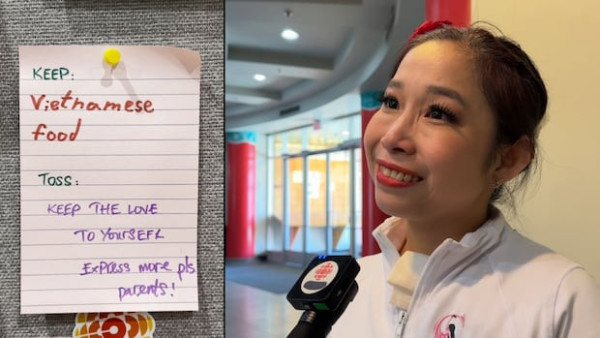 KEEP:
Vietnamese
food
TOSS:
KEEP THE LOVE
TO YOURSEFL
Express more pls
parents!